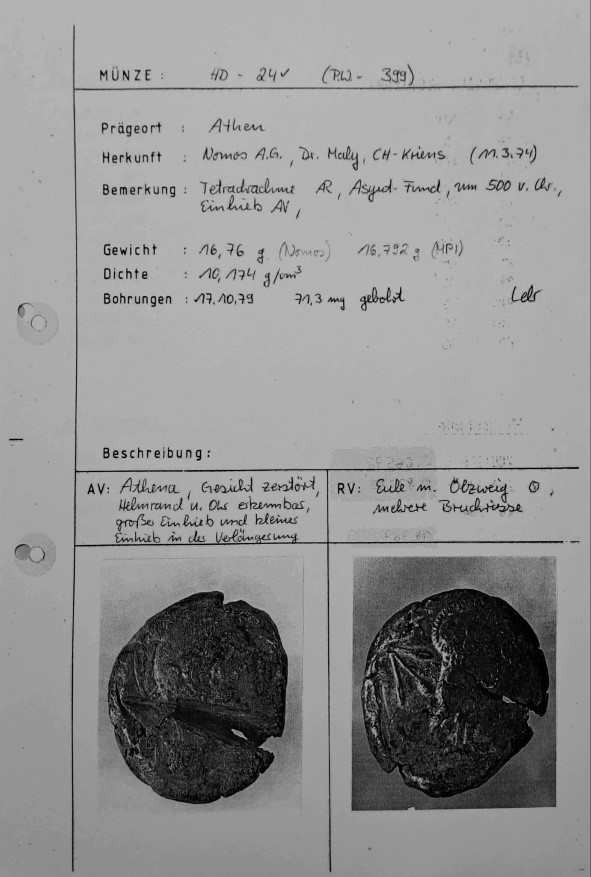 MÜNZE : HD - 24 (P.W. - 399)
Prägeort : Athen
Herkunft : Nomos A.G., Dr. Maly, CH-Kriens (11.3.74)
Bemerkung : Tetradrachme AR, Asyut-Fund, um 500 v. Chr.,
Einhieb AV,
Gewicht : 16,76 g (Nomos) 16,792 g (MPI)
Dichte : 10,174 g/cm³
Bohrungen : 17.10.79 71,3 mg gebohrt
Beschreibung:
AV: Athena, Gesicht zerstört,
Helmrand u. Ohr erkennbar,
großer Einhieb und kleiner
Einhieb in der Verlängerung
RV: Eule m. Ölzweig
mehrere Bruchrisse